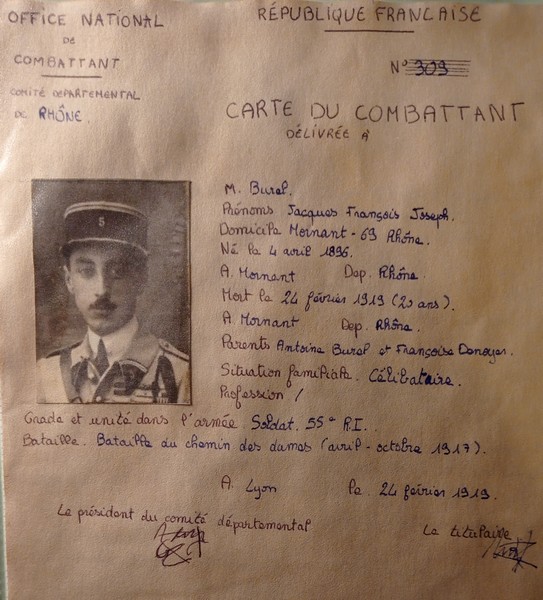 OFFICE NATIONAL
DE
COMBATTANT
COMITÉ DÉPARTEMENTAL
DE RHÔNE.
RÉPUBLIQUE FRANCAISE
N° 309
CARTE DU COMBATTANT
DÉLIVRÉE A
5
M. Burel.
Prénoms Jacques François Joseph.
Domicile Mornant - 69 Rhône.
Né le 4 avril 1896.
A. Mornant Dep. Rhône.
Mort le 24 février 1919 (20 ans).
A. Mornant Dep. Rhône.
Parents Antoine Burel et Françoise Denoyer.
Situation familiale. Célibataire.
Profession /
Grade et unité dans l'armée Soldat. 55e R.I.
Bataille. Bataille du chemin des dames (avril - octobre 1917).
A. Lyon le. 24 février 1919.
Le président du comité départemental
Le titulaire